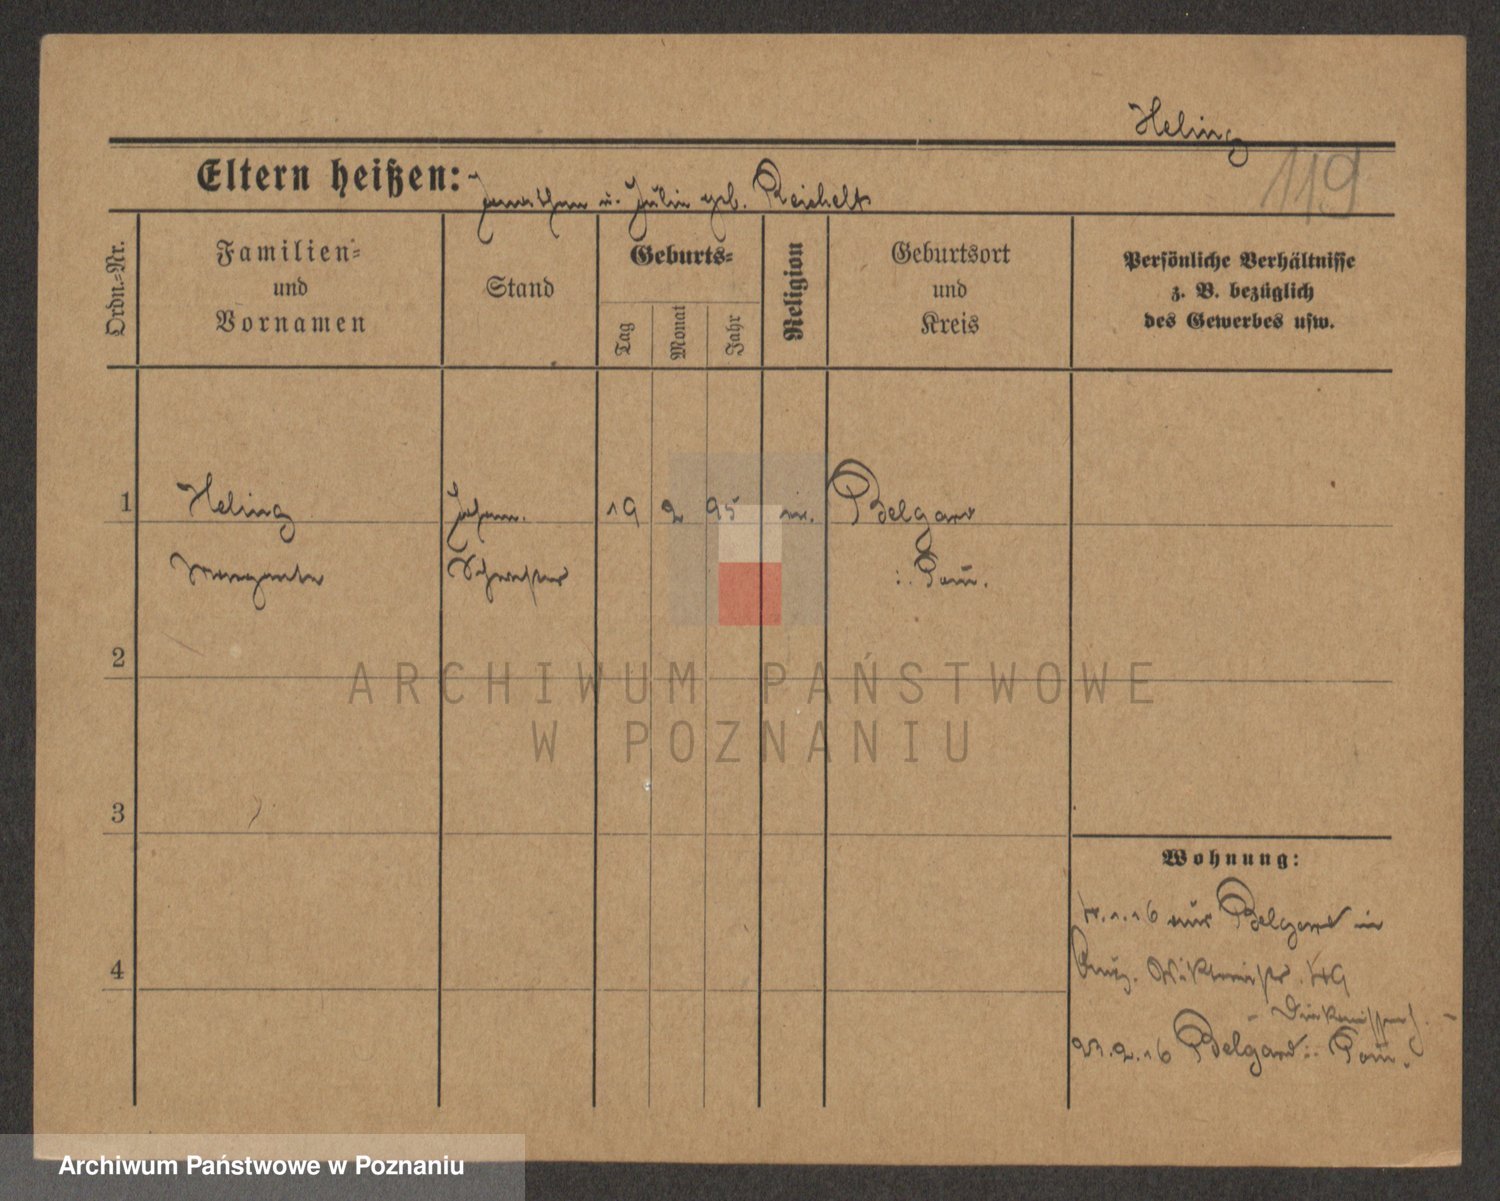 Heling
119
Eltern heißen: Jonathan u. Julie geb. Reichelt
Ordn.-Nr.
Familien-
und
Vornamen
Stand
Geburts-
Tag
Monat
Jahr
Religion
Geburtsort
und
Kreis
Persönliche Verhältnisse
z. B. bezüglich
des Gewerbes usw.
1
Heling
Johann.
19 2 95
Belgard
Margarete
Schwester
i. Pom.
2
ARCHIWUM PAŃSTWOWE
W POZNANIU
3
4
Wohnung:
1.16 aus Belgard in
- Diakonissenh. -
2.16 Belgard i. Pom.
Archiwum Państwowe w Poznaniu